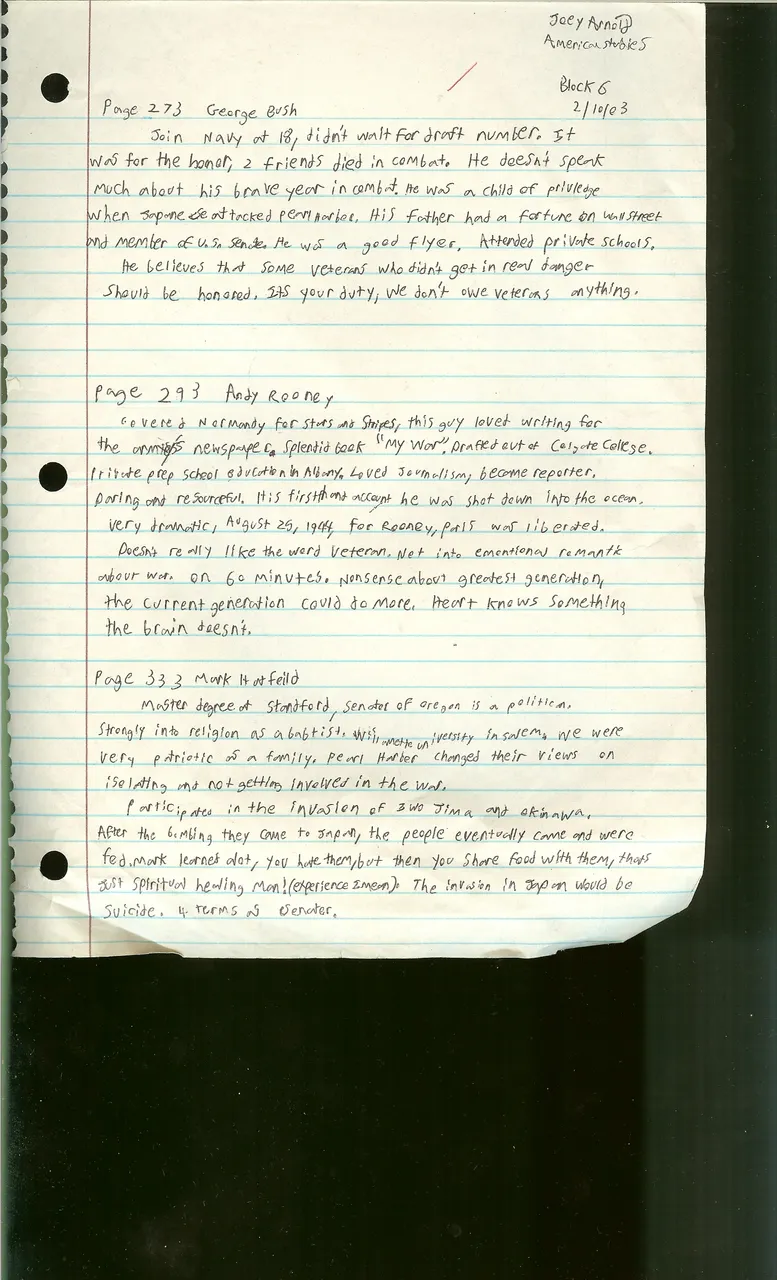 Joey Arnold
American studies
Block 6
2/10/03
Page 273 George Bush
Join Navy at 18, didn't wait for draft number. It
was for the honor, 2 friends died in combat. He doesn't speak
much about his brave year in combat. He was a child of privledge
when Japanese attacked pearl Harbor. His father had a fortune on wall street
and member of U.S. Senate. He was a good flyer. Attended private schools.
He believes that some veterans who didn't get in real danger
should be honored. Its your duty, we don't owe veterans anything.
Page 293 Andy Rooney
Covered Normandy for Stars and Stripes, this guy loved writing for
the newspaper. Splendid book "My War". Drafted out of Colgate College.
Private prep school education in Albany. Loved Journalism, become reporter.
Daring and resourceful. His firsthand account he was shot down into the ocean.
very dramatic, August 25, 1944, for Rooney, paris was liberated.
Doesn't really like the word veteran. Not into emontional romantic
about war. on 60 minutes. Nonsense about greatest generation,
the current generation could do more. Heart knows something
the brain doesn't.
Page 333 Mark Hatfeild
Master degree at Standford, senator of oregon is a politien.
Strongly into religion as a babtist. Willamette university in salem. We were
very patriotic as a family. Pearl Harber changed their views on
isolating and not getting involved in the war.
Participated in the invasion of Iwo Jima and okinawa.
After the bombing they came to Japan, the people eventually came and were
fed. Mark learned alot, you hate them, but then you share food with them, thats
just spiritual healing man! (experience I mean). The invasion in Japan would be
suicide. 4 terms as senator.